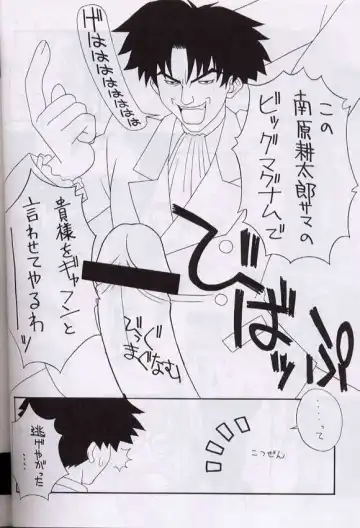 げははははははは
この
南原耕太郎サマの
ビッグマグナムで
びばッ
びっぐ
まぐなむ
貴様をギャフンと
言わせてやるわッ
……って
こつぜん
逃げやがった
……